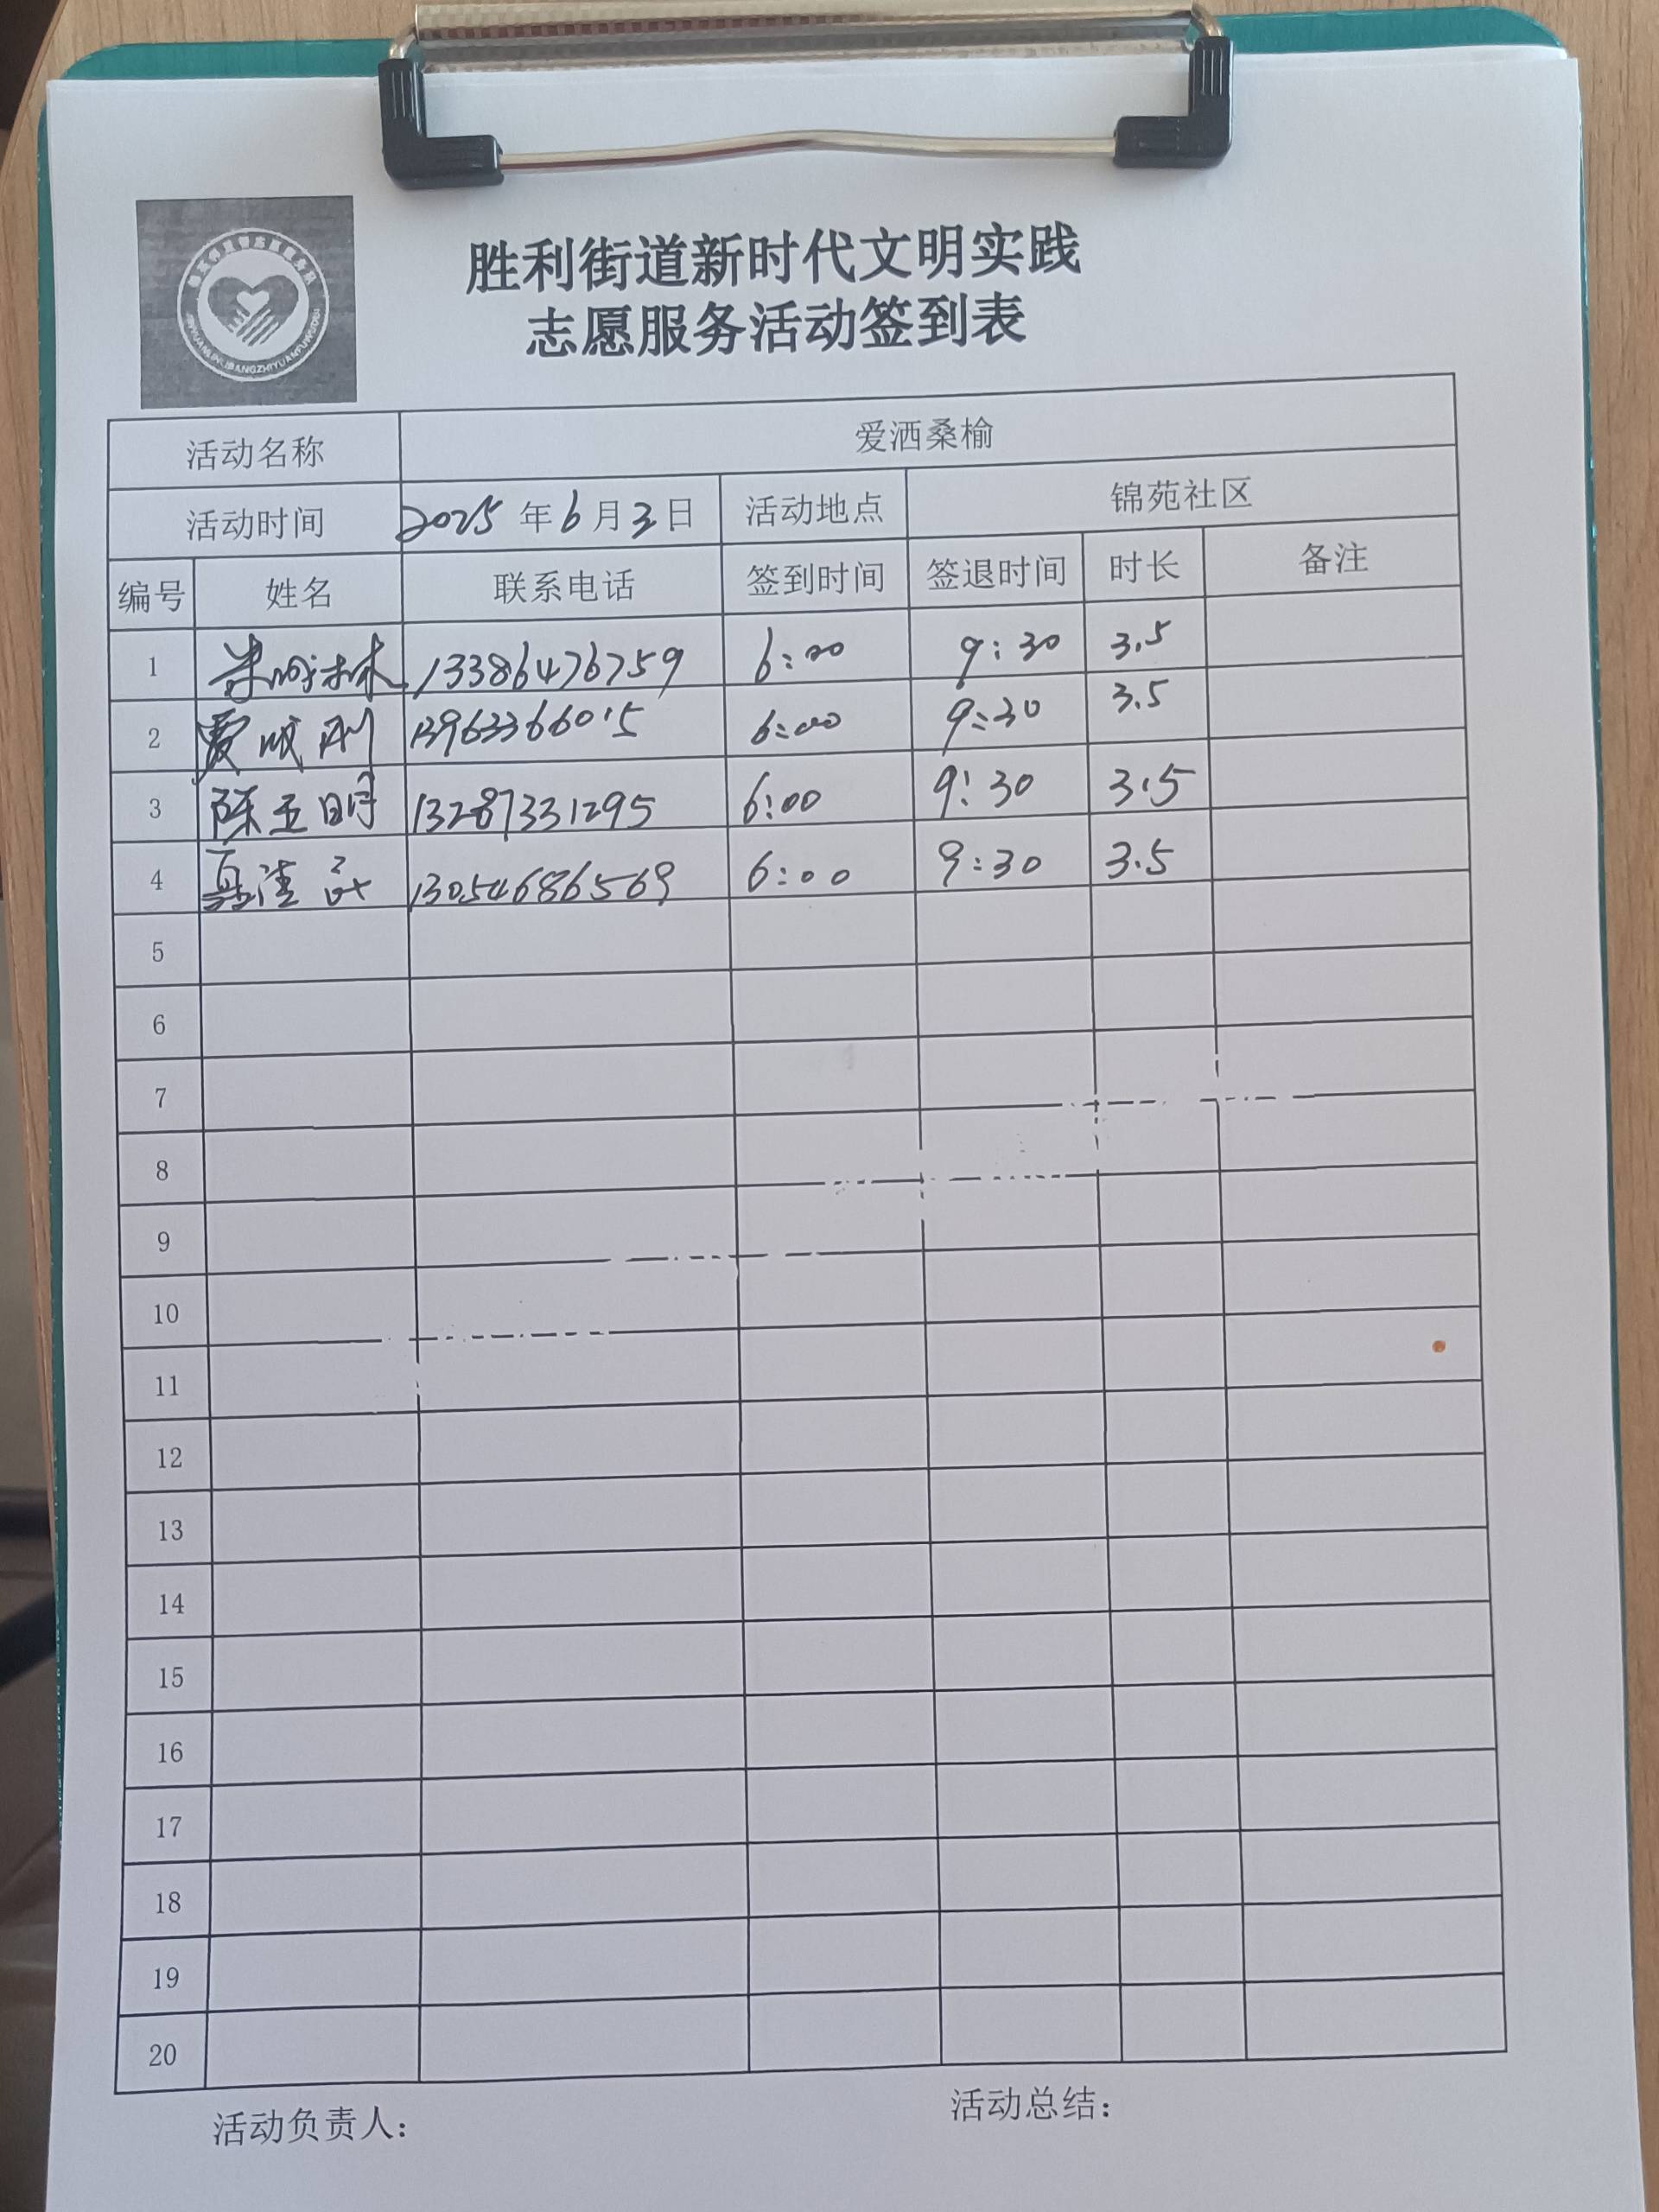 胜利街道新时代文明实践
志愿服务活动签到表
活动名称 爱洒桑榆
活动时间 2025年6月3日 活动地点 锦苑社区
编号 姓名 联系电话 签到时间 签退时间 时长 备注
1 13386476759 6:00 9:30 3.5
2 13963366015 6:00 9:30 3.5
3 陈玉明 13287331295 6:00 9:30 3.5
4 13054686569 6:00 9:30 3.5
5
6
7
8
9
10
11
12
13
14
15
16
17
18
19
20
活动负责人： 活动总结：